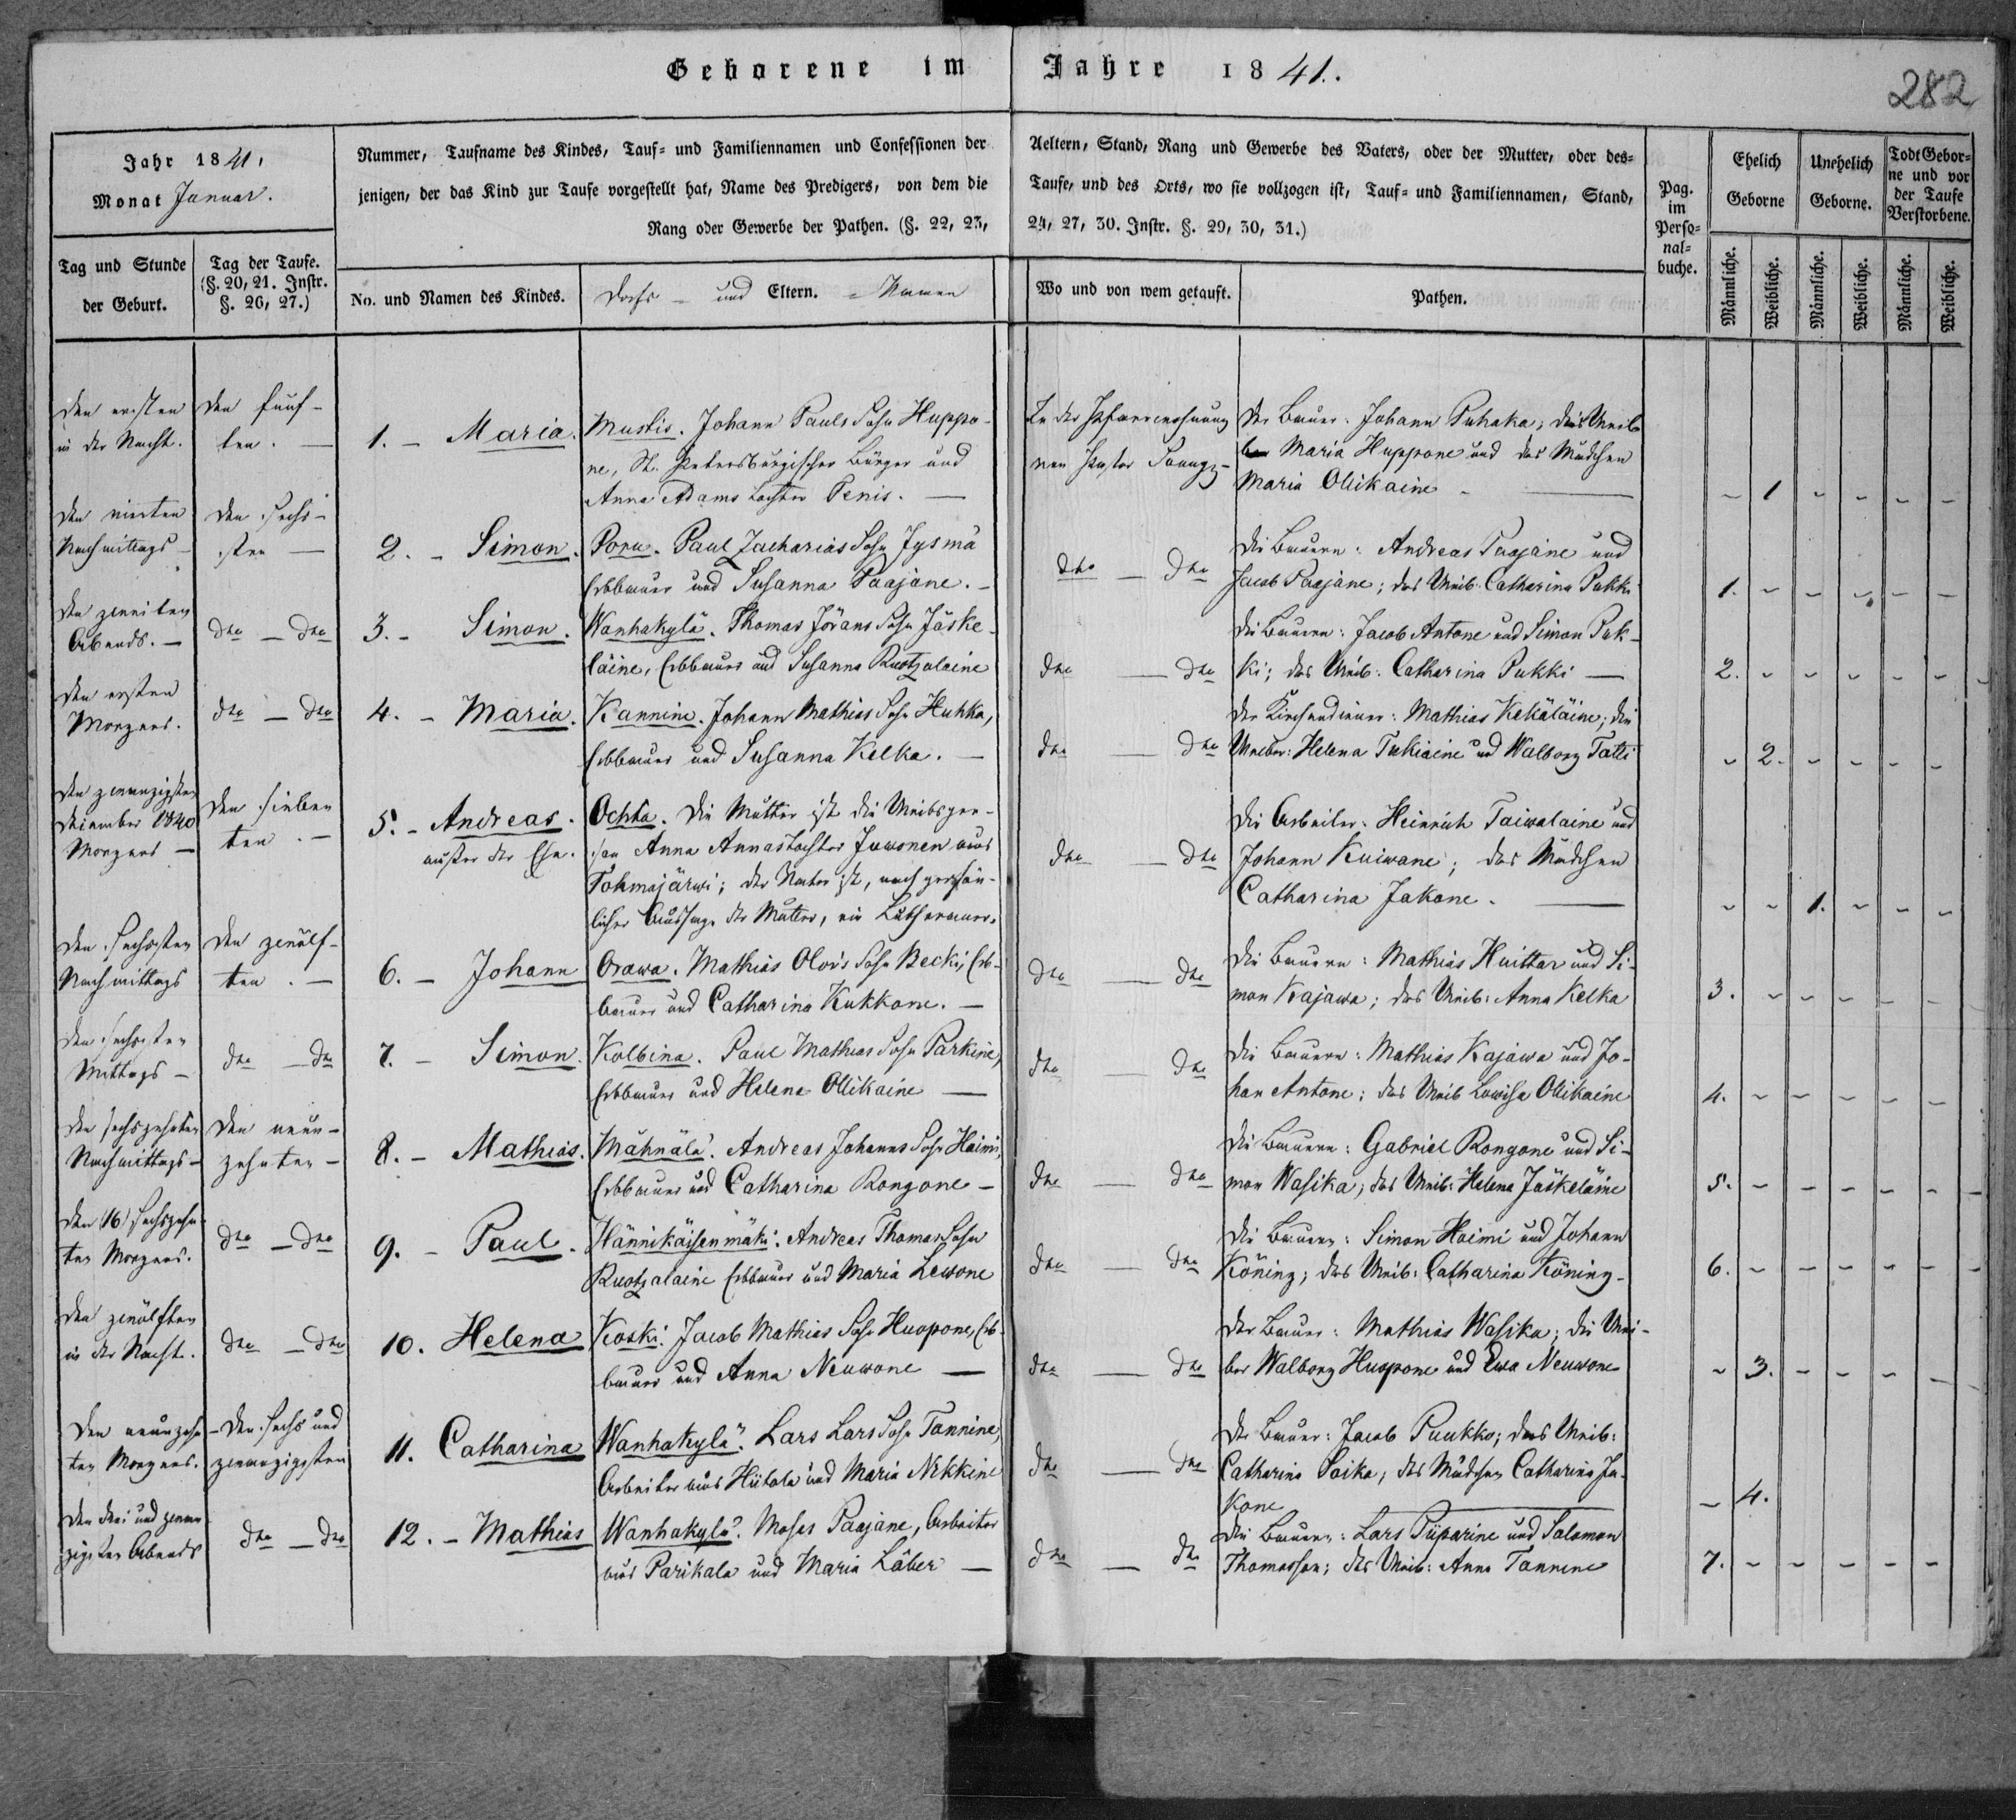 Geborene im Jahre 1841.
282
Jahr 1841,
Monat Januar.
Tag und Stunde
der Geburt.
Tag der Taufe.
(§. 20, 21. Instr.
§. 26, 27.)
Nummer, Taufname des Kindes, Tauf= und Familiennamen und Confessionen der
jenigen, der das Kind zur Taufe vorgestellt hat, Name des Predigers, von dem die
Rang oder Gewerbe der Pathen. (§. 22, 23,
No. und Namen des Kindes.
Dorfs - und Eltern. = Namen
Aeltern, Stand, Rang und Gewerbe des Vaters, oder der Mutter, oder des=
Taufe, und des Orts, wo sie vollzogen ist, Tauf= und Familiennamen, Stand,
24, 27, 30. Instr. §. 29, 30, 31.)
Wo und von wem getauft.
Pathen.
Pag.
im
Perso=
nal=
buche.
Ehelich
Geborne
Unehelich
Geborne.
Todt Gebor=
ne und vor
der Taufe
Verstorbene.
Männliche.
Weibliche.
Männliche.
Weibliche.
Männliche.
Weibliche.
den ersten
in der Nacht.
den fünf-
ten. —
1. - Maria.
Mustis. Johann Pauls Sohn Huppo-
ne, St. Petersburgischer Bürger und
Anna Adams Tochter Penis. —
In der Pfarrwohnung
von Pastor
Der Bauer: Johann Puhaka; das Weib
Maria Huppone und das Mädchen
Maria Ollikaine - —
- 1 - - - -
den vierten
Nachmittags -
den sechs-
sten —
2. - Simon.
Poru. Paul Zacharias Sohn Jysmä
Erbbauer und Susanna Paajane. -
dto — dto
Die Bauern: Andreas Paajane und
Jacob Paajane; das Weib Catharina Pukki
1. - - - - -
den zweiten
Abends. -
dto - dto
3. - Simon.
Wanhakylä. Thomas Jörans Sohn Jäske-
läine, Erbbauer und Susanna Ruotzalaine
dto — dto
Die Bauern: Jacob Antone und Simon Puk-
ki; das Weib: Catharina Pukki —
2. - - - - -
den ersten
Morgens.
dto - dto
4. - Maria.
Kannine. Johann Mathias Sohn Huhka,
Erbbauer und Susanna Kelka. —
dto — dto
Der Kirchendiener: Mathias Kekäläine; die
Weiber: Helena Tukiaine und Walborg Tatti
- 2. - - - -
den zwanzigsten
December 1840
Morgens -
den sieben
ten. -
5. - Andreas.
außer der Ehe.
Ochta. Die Mutter ist die Weibsper-
son Anna Annas Tochter Juwonen aus
Tohmajärwi; der Vater ist, nach persön-
licher Aussage der Mutter, ein Lutheraner.
dto — dto
Die Arbeiter: Heinrich Taiwalaine und
Johann Kuiwane; das Mädchen
Catharina Jakone. —
- - 1. - - -
den sechsten
Nachmittags
den zwölf-
ten. -
6. - Johann
Orawa. Mathias Olovs Sohn Becki, Erb-
bauer und Catharina Kukkone. -
dto — dto
Die Bauern: Mathias Huittar und Si-
mon Kajawa; das Weib: Anna Kelka
3. - - - - -
den sechsten
Mittags -
dto - dto
7. - Simon.
Kolbina. Paul Mathias Sohn Parkine,
Erbbauer und Helena Ollikaine —
dto — dto
Die Bauern: Mathias Kajawa und Jo-
han Antone; das Weib Lowisa Ollikaine
4. - - - - -
den sechszehnten
Nachmittags -
den neun-
zehnten -
8. - Mathias.
Mähnälä. Andreas Johanns Sohn Haimi,
Erbbauer und Catharina Rongone -
dto — dto
Die Bauern: Gabriel Rongone und Si-
mon Wasika; das Weib: Helena Jäskeläine
5. - - - - -
den (16) sechszehn-
ten Morgens.
dto - dto
9. - Paul.
Hännikäisenmäki. Andreas Thomas Sohn
Ruotzalaine Erbbauer und Maria Lewone
dto — dto
Die Bauern: Simon Haimi und Johann
Köning; das Weib: Catharina Köning-
6. - - - - -
den zwölften
in der Nacht.
dto - dto
10. Helena
Koski. Jacob Mathias Sohn Huopone, Erb-
bauer und Anna Neuwone —
dto — dto
Der Bauer: Mathias Wasika; die Wei-
ber Walborg Huopone und Ewa Neuwone
- 3. - - - -
den neunzehn-
ten Morgens.
den sechs und
zwanzigsten
11. Catharina
Wanhakylä. Lars Lars Sohn Tannine,
Arbeiter aus Hiitola und Maria Nikkine
dto — dto
Der Bauer: Jacob Puukko; das Weib:
Catharina Saika; das Mädchen Catharina Ja-
kone —
- 4.
den drei und zwan-
zigsten Abends
dto - dto
12. - Mathias
Wanhakylä. Moses Paajane, Arbeiter
aus Parikala und Maria Läber —
dto — dto
Die Bauern: Lars Piiparine und Salomon
Thomasson; das Weib: Anna Tannine
7. - - - - -